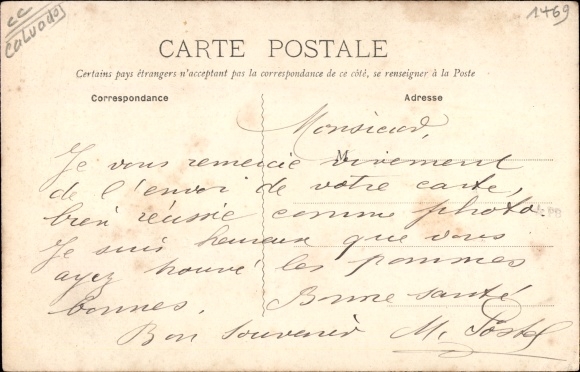 CC
Calvados
1469
CARTE POSTALE
Certains pays étrangers n'acceptant pas la correspondance de ce côté, se renseigner à la Poste
Correspondance
Adresse
Monsieur,
M
Je vous remercie vivement
de l'envoi de votre carte,
bien réussie comme photo
Je suis heureux que vous
ayez trouvé les pommes
bonnes. Bonne santé
Bon Souvenir M. Postel